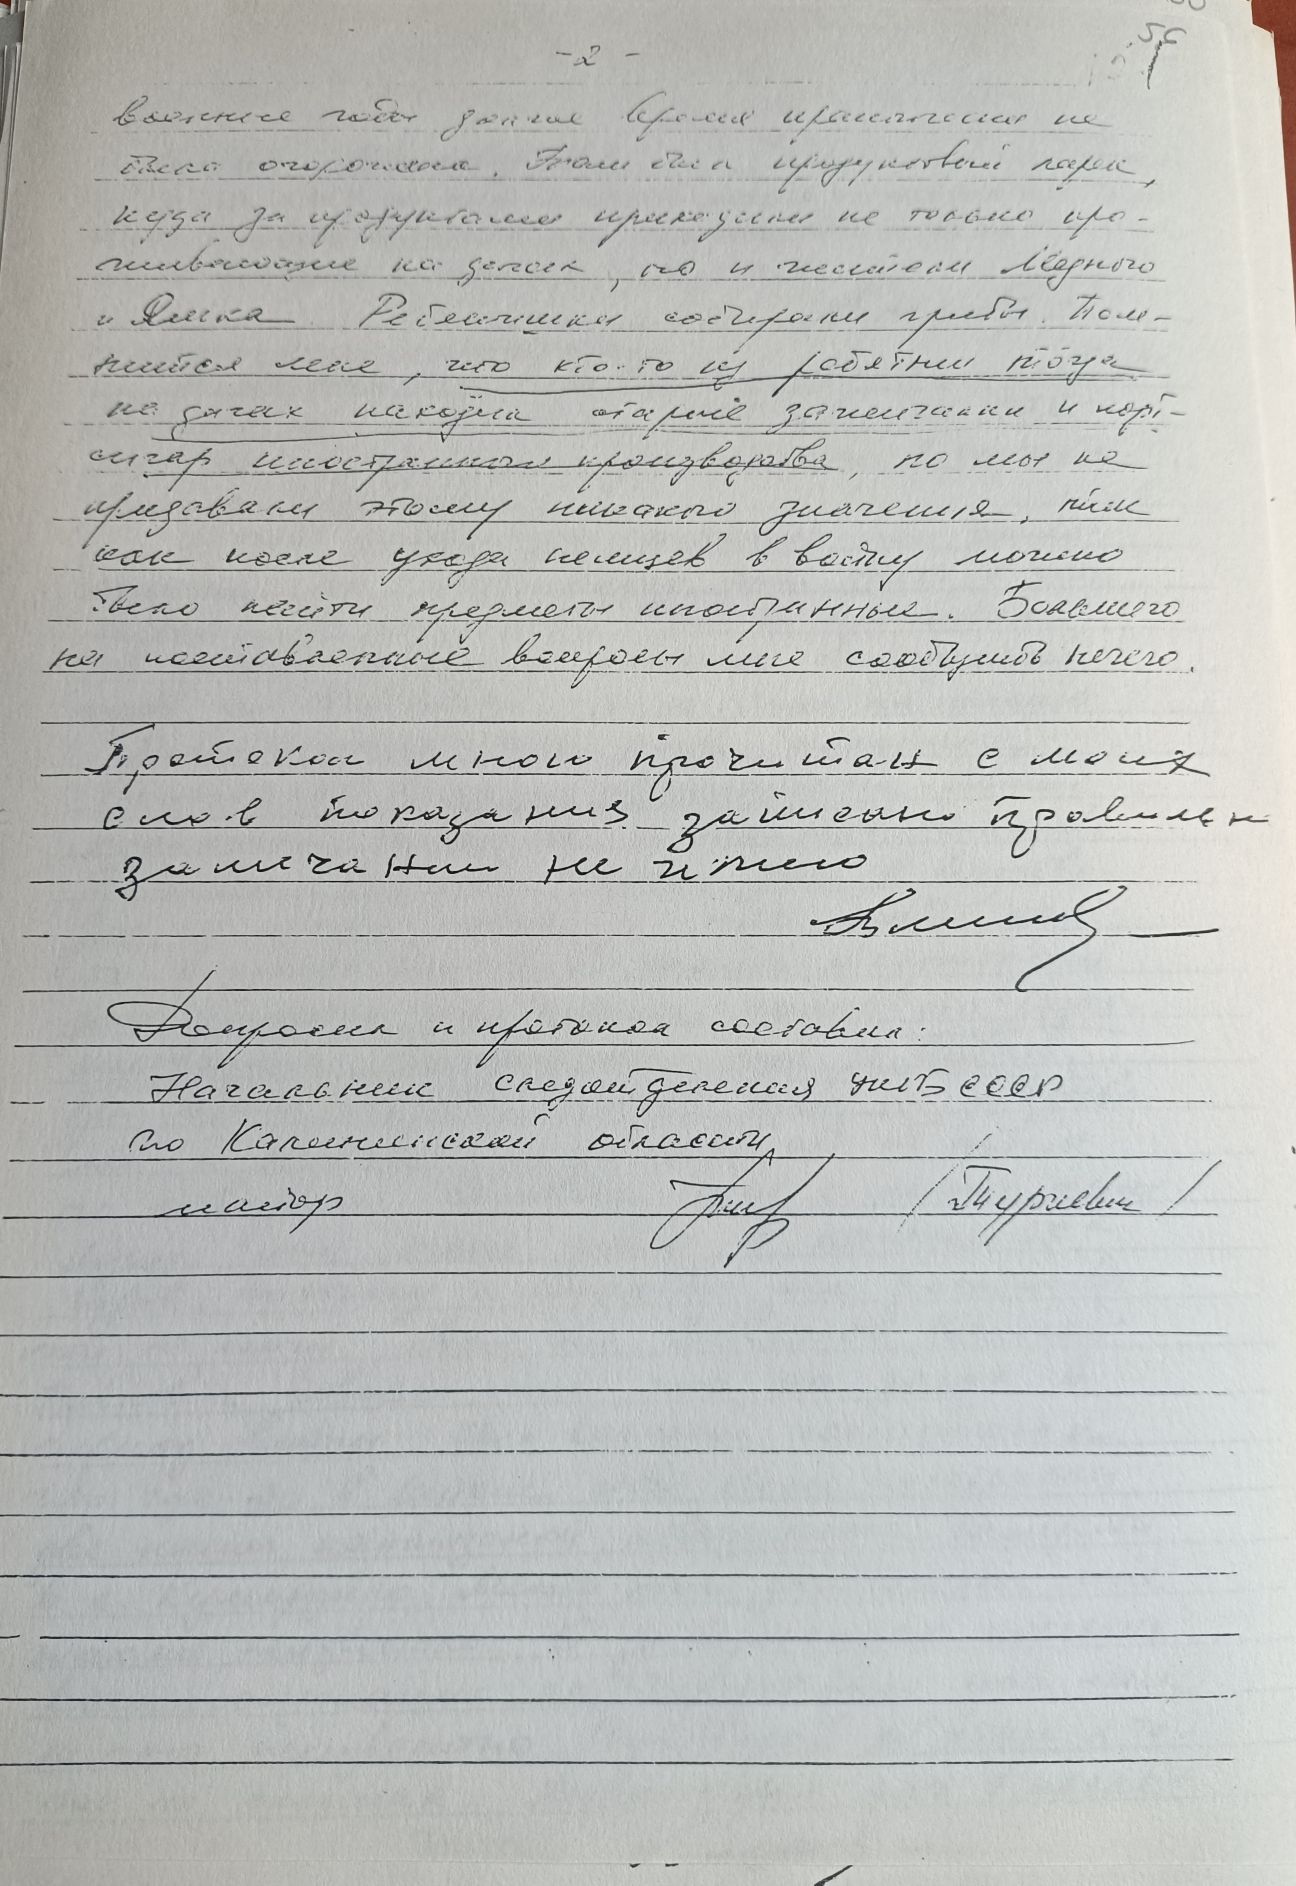 - 2 -
56
военные годы долгое время практически не
была огорожена. Там был продуктовый ларек,
куда за продуктами приходили не только про-
живающие на дачах, но и жители Медного
и Ямка. Ребятишки собирали грибы. Пом-
нится мне, что кто-то из ребятни тогда
на дачах находил старые зажигалки и порт-
сигар иностранного производства, но мы не
придавали этому никакого значения, так
как после ухода немцев в войну можно
было найти предметы иностранные. Большего
на поставленные вопросы мне сообщить нечего.
Протокол мною прочитан с моих
слов показания записано правильн
замечании не имею
Допросил и протокол составил:
Начальник следотделения УКГБ СССР
по Калининской области
майор /Туркевич/